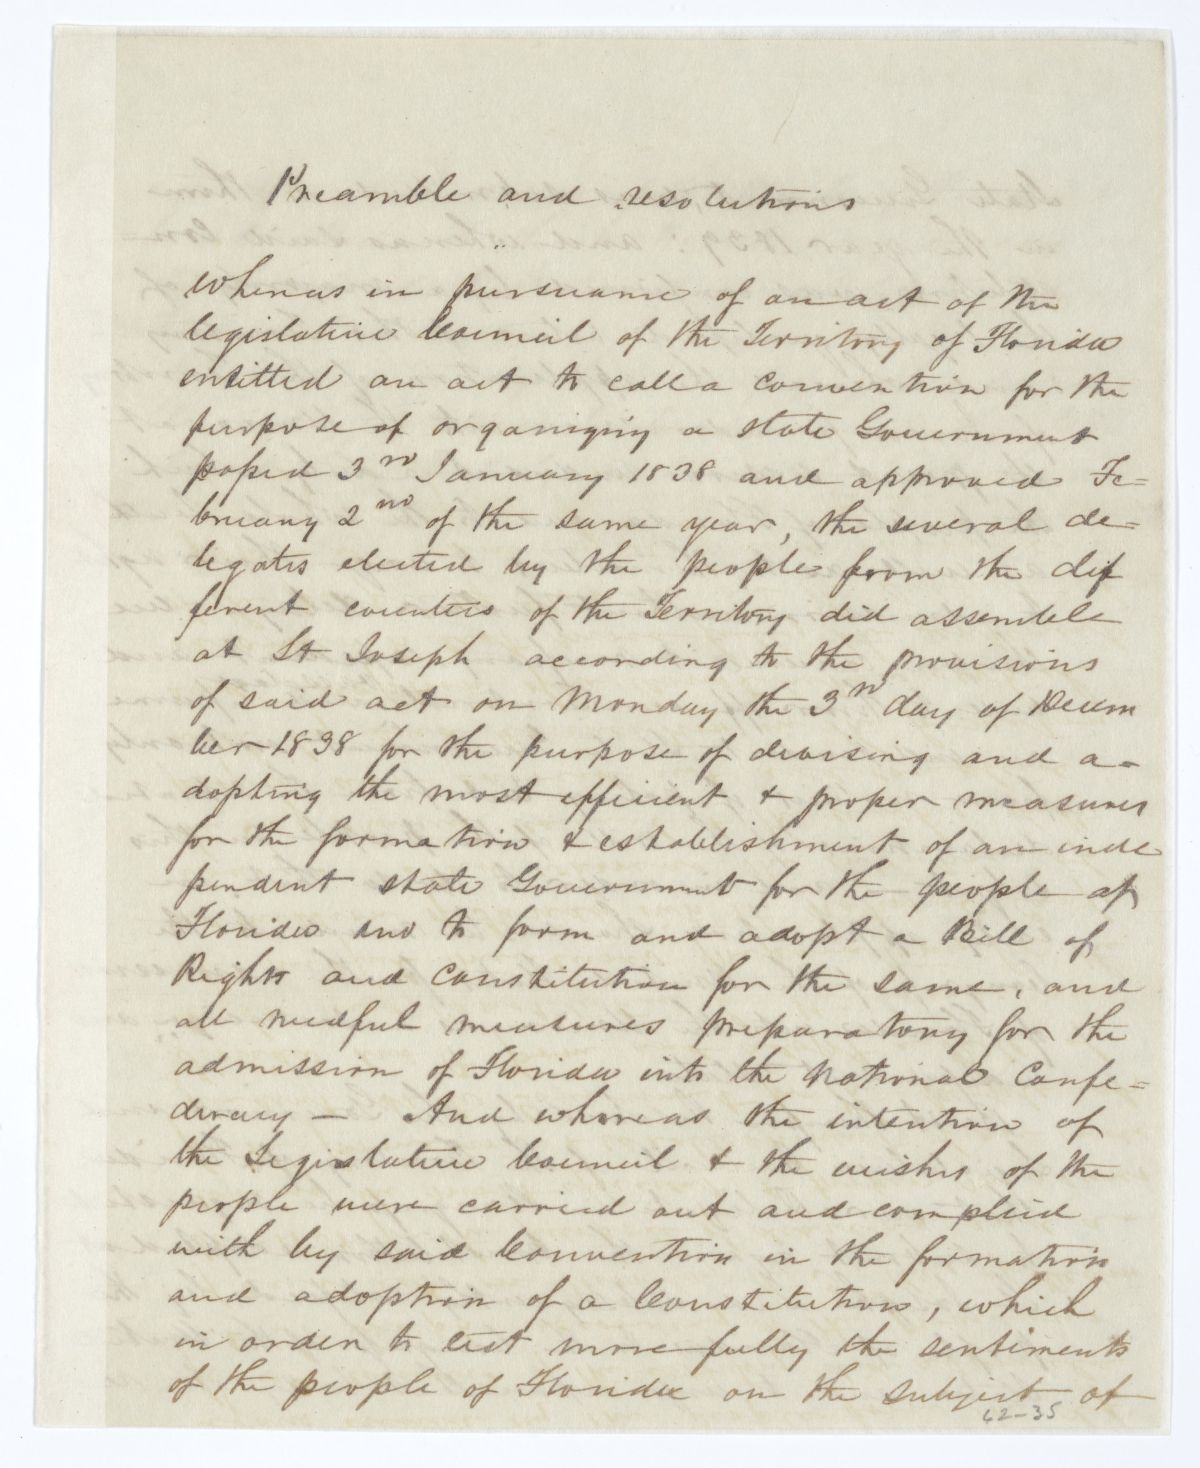 Preamble and resolutions
Whereas in pursuance of an act of the
legislative Council of the Territory of Florida
entitled an act to call a convention for the
purpose of organizing a state Government
passed 3rd January 1838 and approved Fe=
bruary 2nd of the same year, the several de=
legates elected by the people from the dif
ferent counties of the Territory did assemble
at St Joseph according to the provisions
of said act on Monday the 3rd day of Decem
ber 1838 for the purpose of devising and a=
dopting the most efficient & proper measures
for the formation & establishment of an inde
pendent state Government for the people of
Florida and to form and adopt a Bill of
Rights and constitution for the same, and
all needful measures preparatory for the
admission of Florida into the national Confe=
deracy — And whereas the intention of
the Legislative Council & the wishes of the
people were carried out and complied
with by said Convention in the formation
and adoption of a Constitution, which
in order to test more fully the sentiments
of the people of Florida on the subject of
62-35